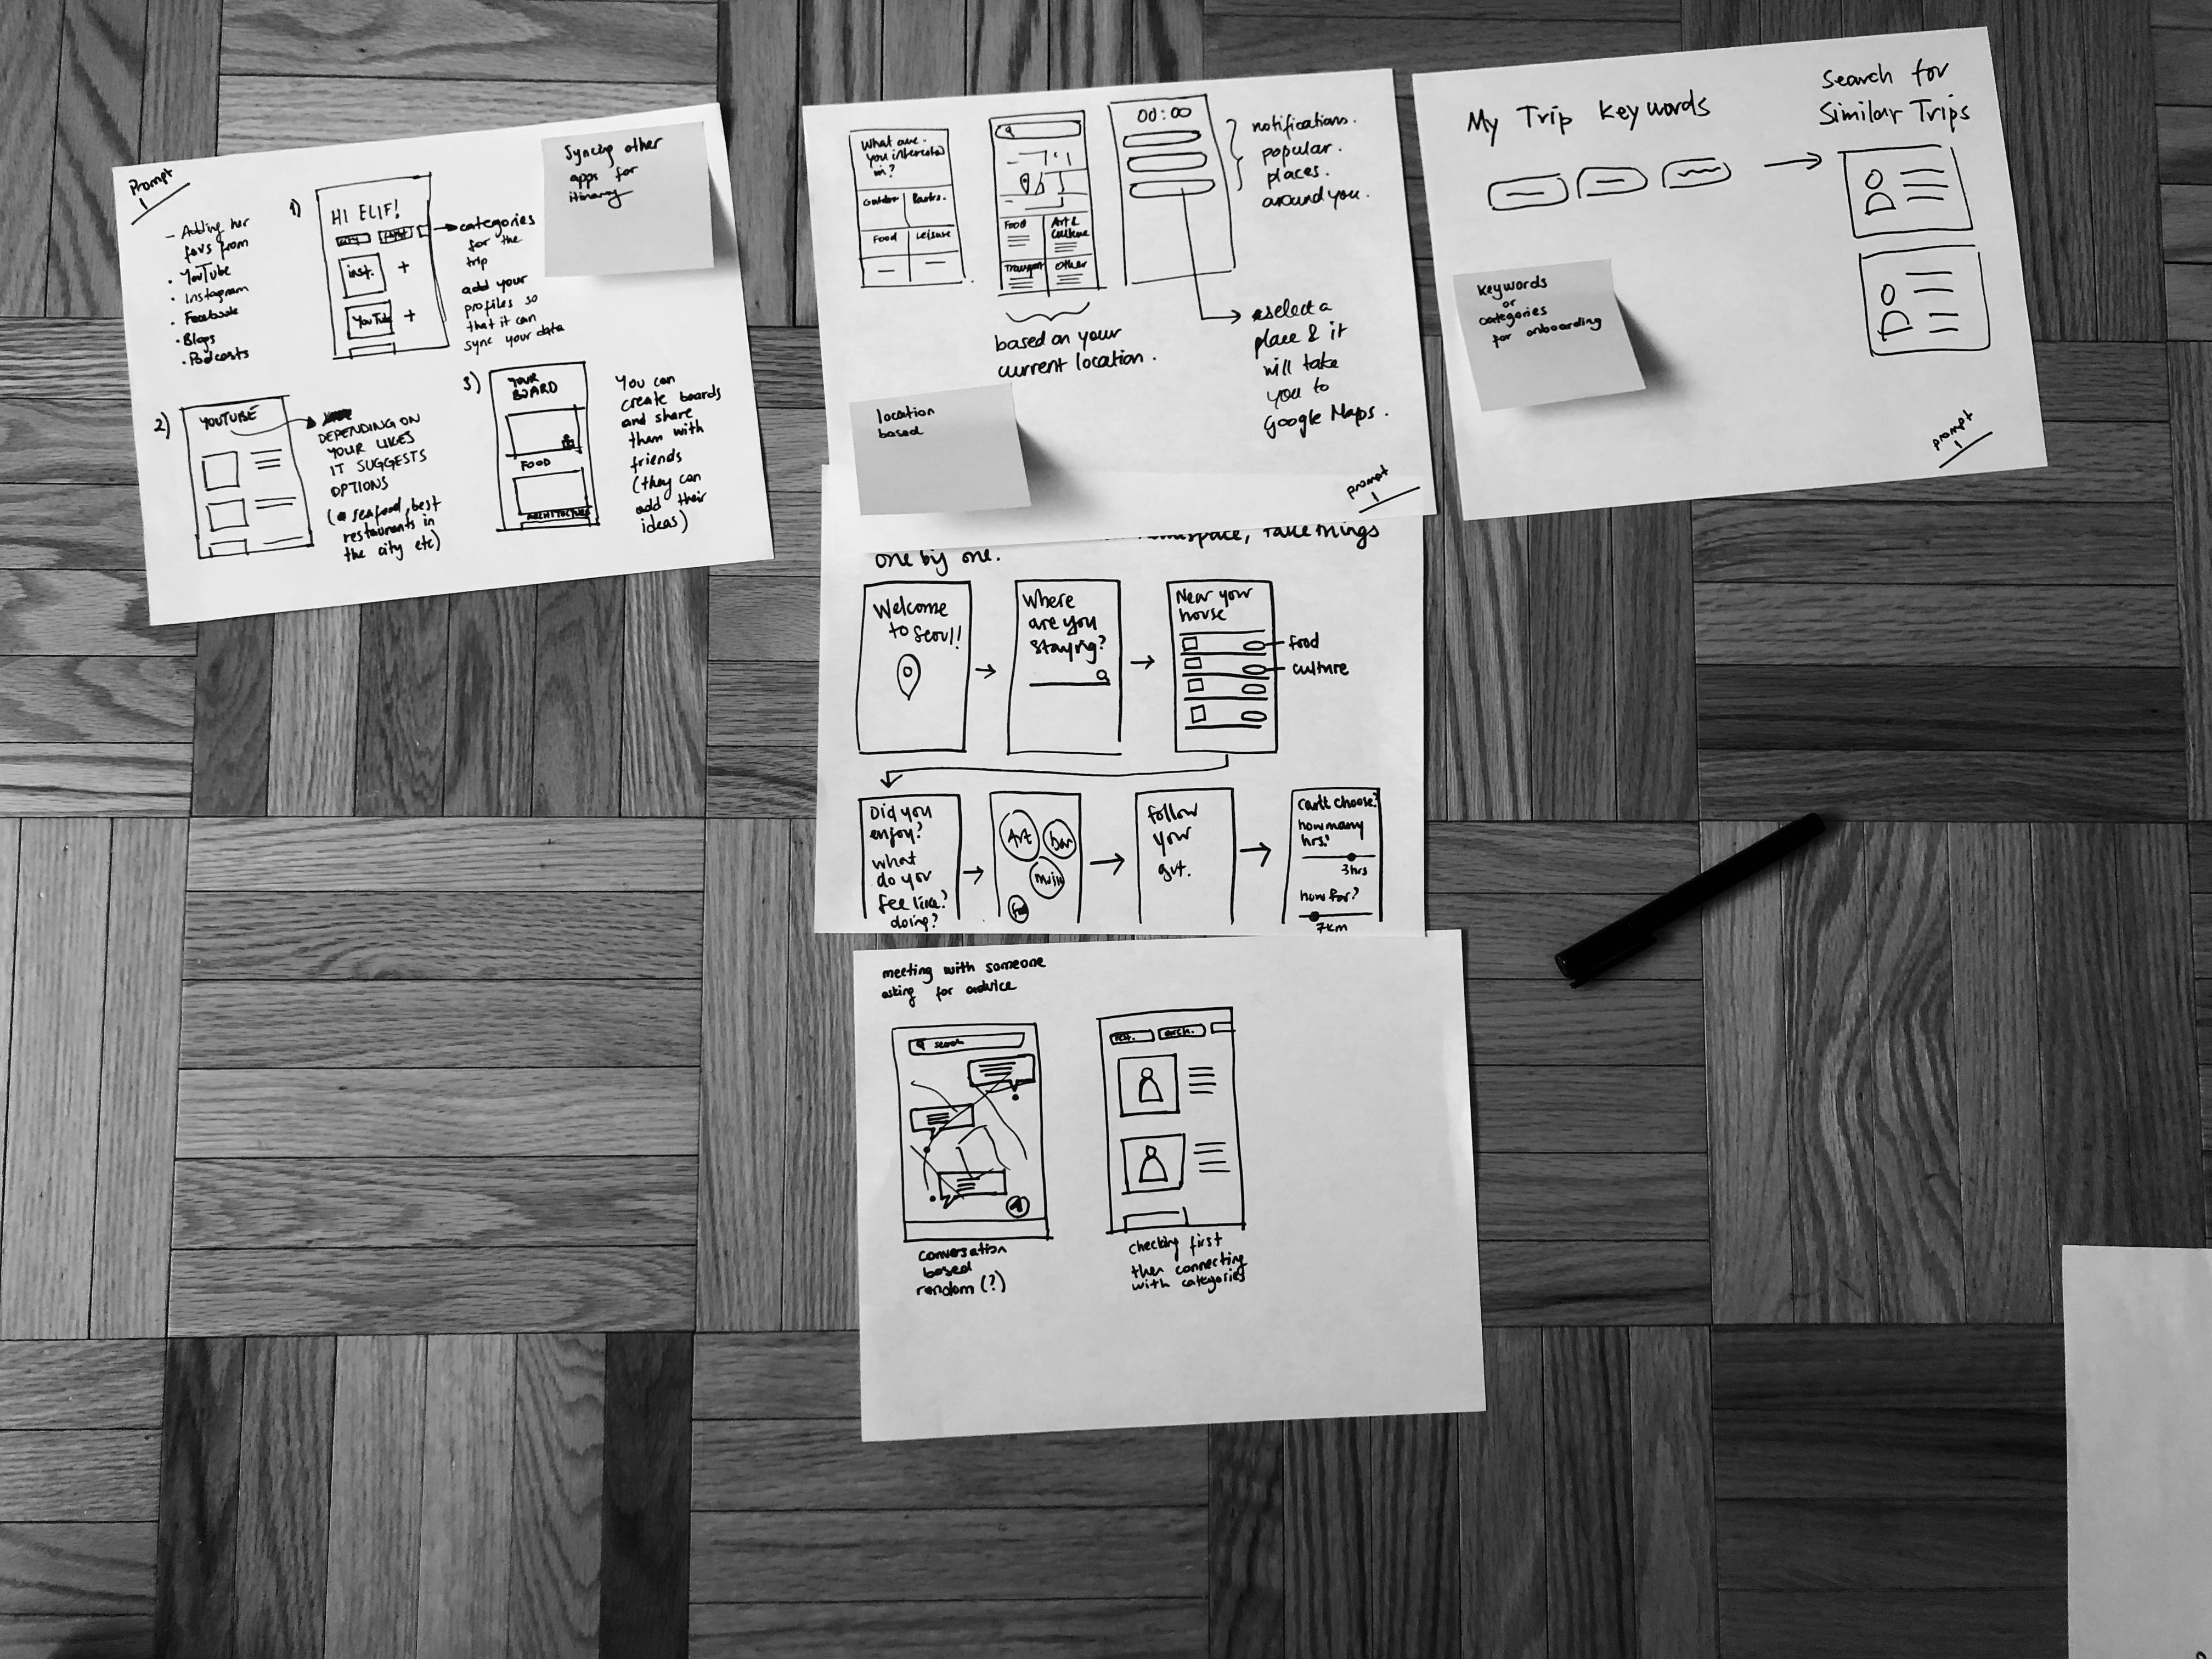 Prompt
1
- Adding her
favs from
• YouTube
• Instagram
• Facebook
• Blogs
• Podcasts
1)
HI ELIF!
inst.
+
YouTube
+
categories
for the
trip
add your
profiles so
that it can
sync your data
Syncing other
apps for
itinarary
2)
YOUTUBE
DEPENDING ON
YOUR LIKES
IT SUGGESTS
OPTIONS
seafood, best
restaurants in
the city etc)
3)
YOUR
BOARD
FOOD
ARCHITECTURE
You can
create boards
and share
them with
friends
(they can
add their
ideas)
What are
you interested
in?
outdoor
Food
Leisure
Food
Art &
Culture
Transport
other
based on your
current location.
00:00
notifications.
popular.
places.
around you.
select a
place & it
will take
you to
Google Maps.
location
based
prompt
1
My Trip Keywords
Search for
Similar Trips
Keywords
or
categories
for onboarding
prompt
1
take things
one by one.
Welcome
to Seoul!
Where
are you
staying?
Near your
house
food
culture
Did you
enjoy?
what
do you
feel like?
doing?
Art
bar
follow
your
gut.
Can't choose?
how many
hrs?
3hrs
how far?
7km
meeting with someone
asking for advice
search
conversation
based
random (?)
rest.
arch.
checking first
then connecting
with categories